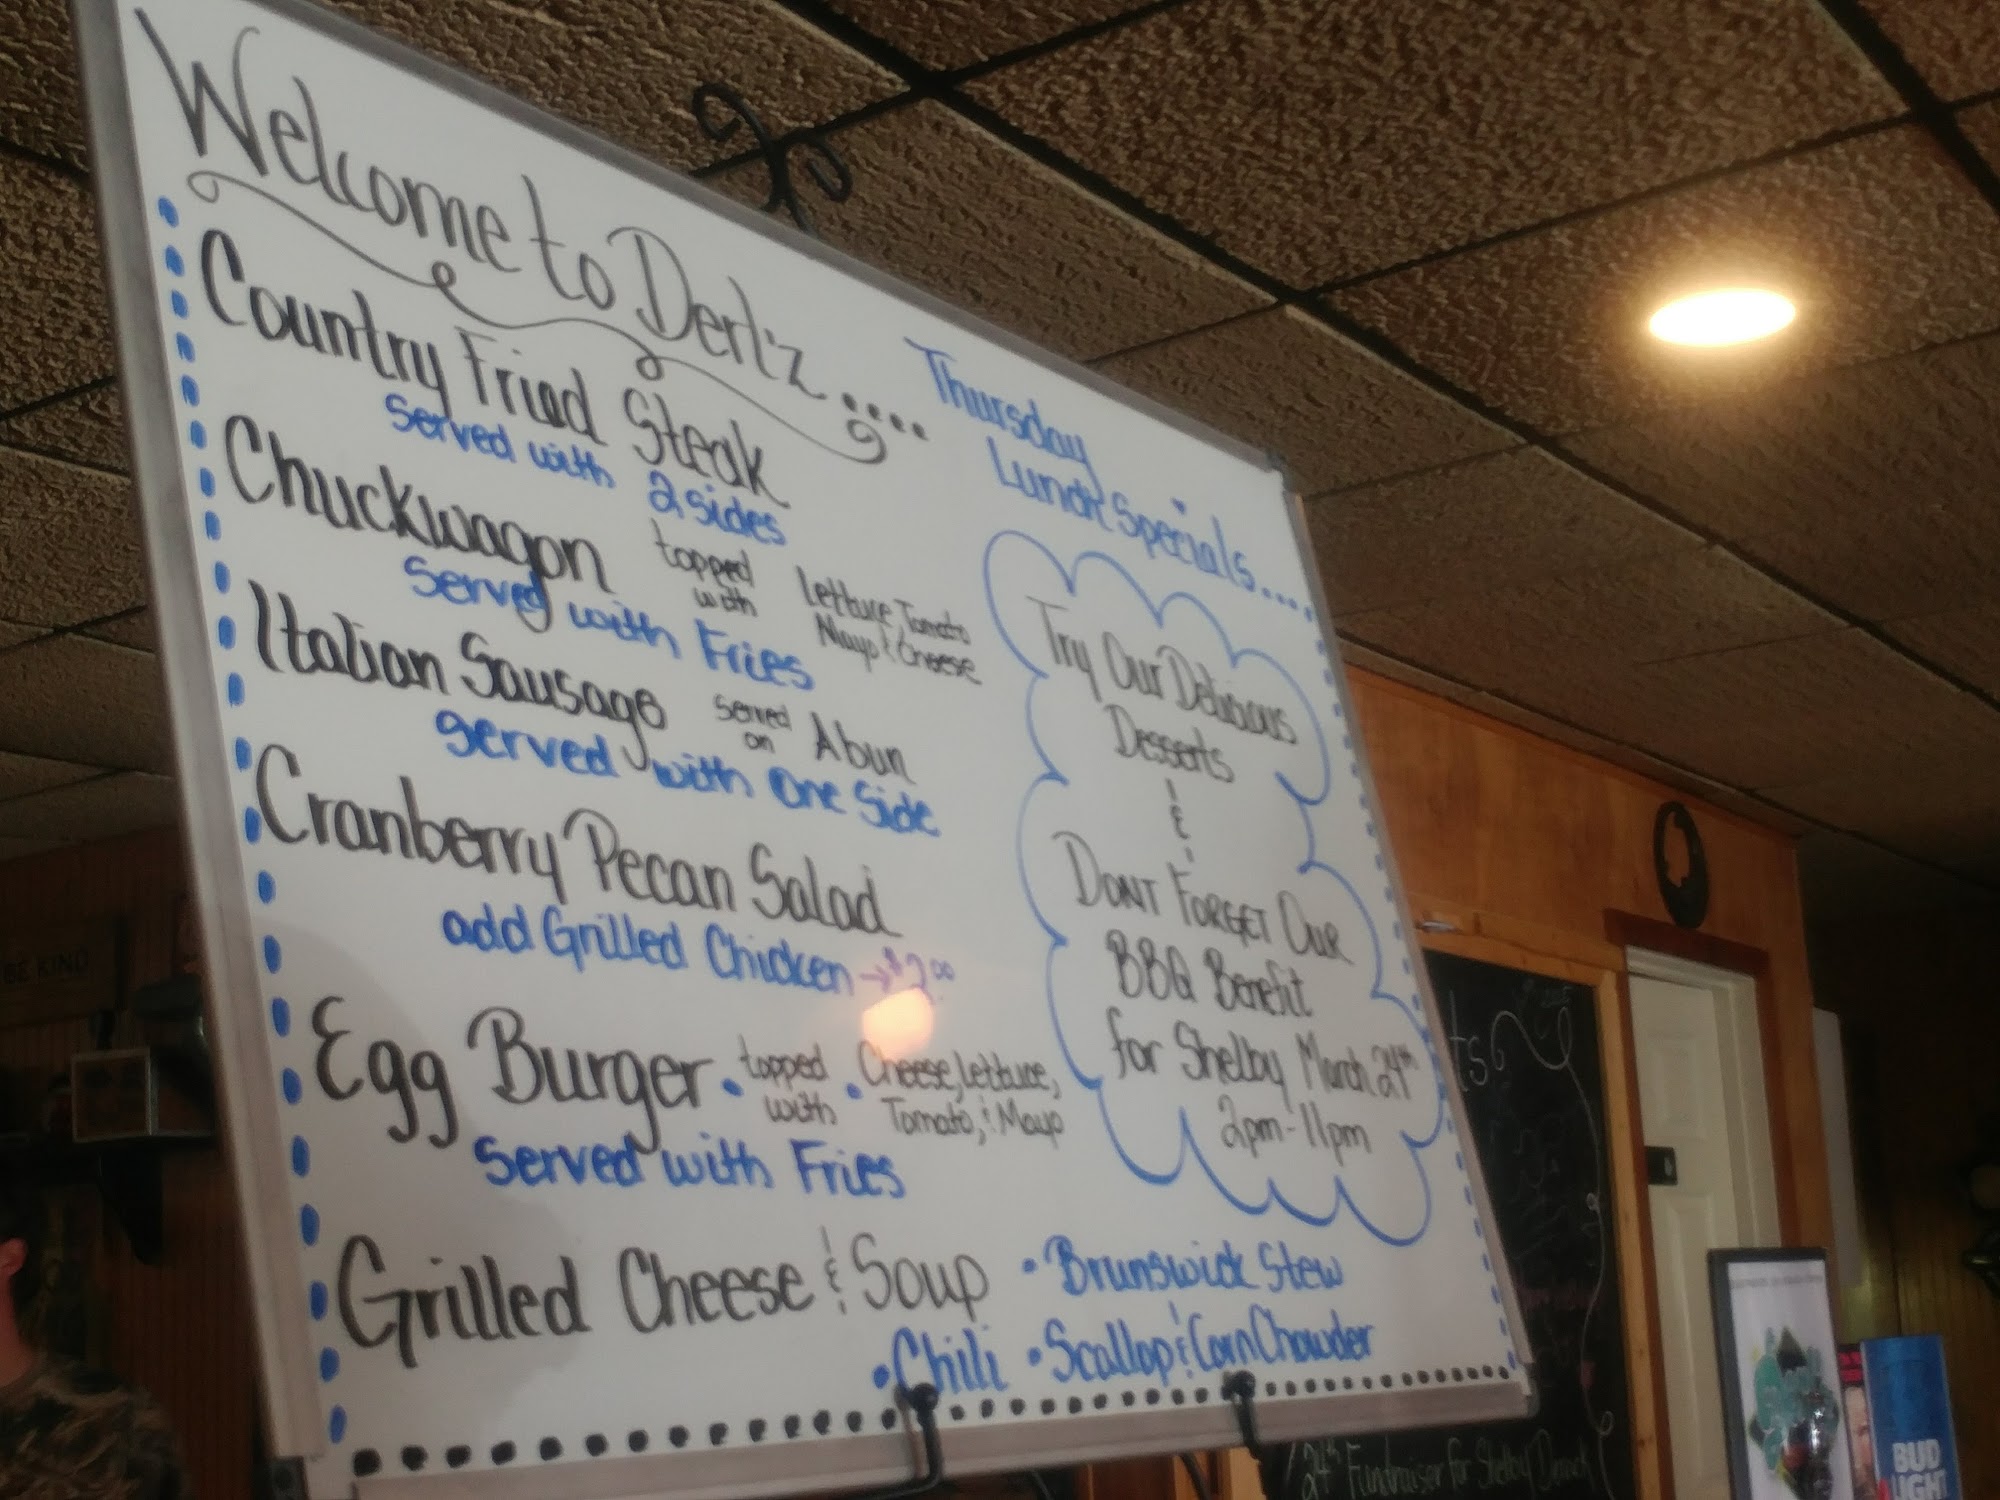 Welcome to Derl'z....
Thursday
Lunch Specials....
Country Fried Steak
Served with 2 sides
Chuckwagon topped with Lettuce, Tomato
Mayo & Cheese
Served with Fries
Italian Sausage served on A bun
served with One Side
Cranberry Pecan Salad
add Grilled Chicken → $2.00
Egg Burger • topped with • Cheese, Lettuce,
Tomato, & Mayo
Served with Fries
Grilled Cheese & Soup • Brunswick Stew
• Chili • Scallop & Corn Chowder
Try Our Delicious
Desserts
&
DONT FORGET OUR
BBQ Benefit
for Shelby March 24th
2pm-11pm
BE KIND
24th Fundraiser for Shelby
BUD
LIGHT